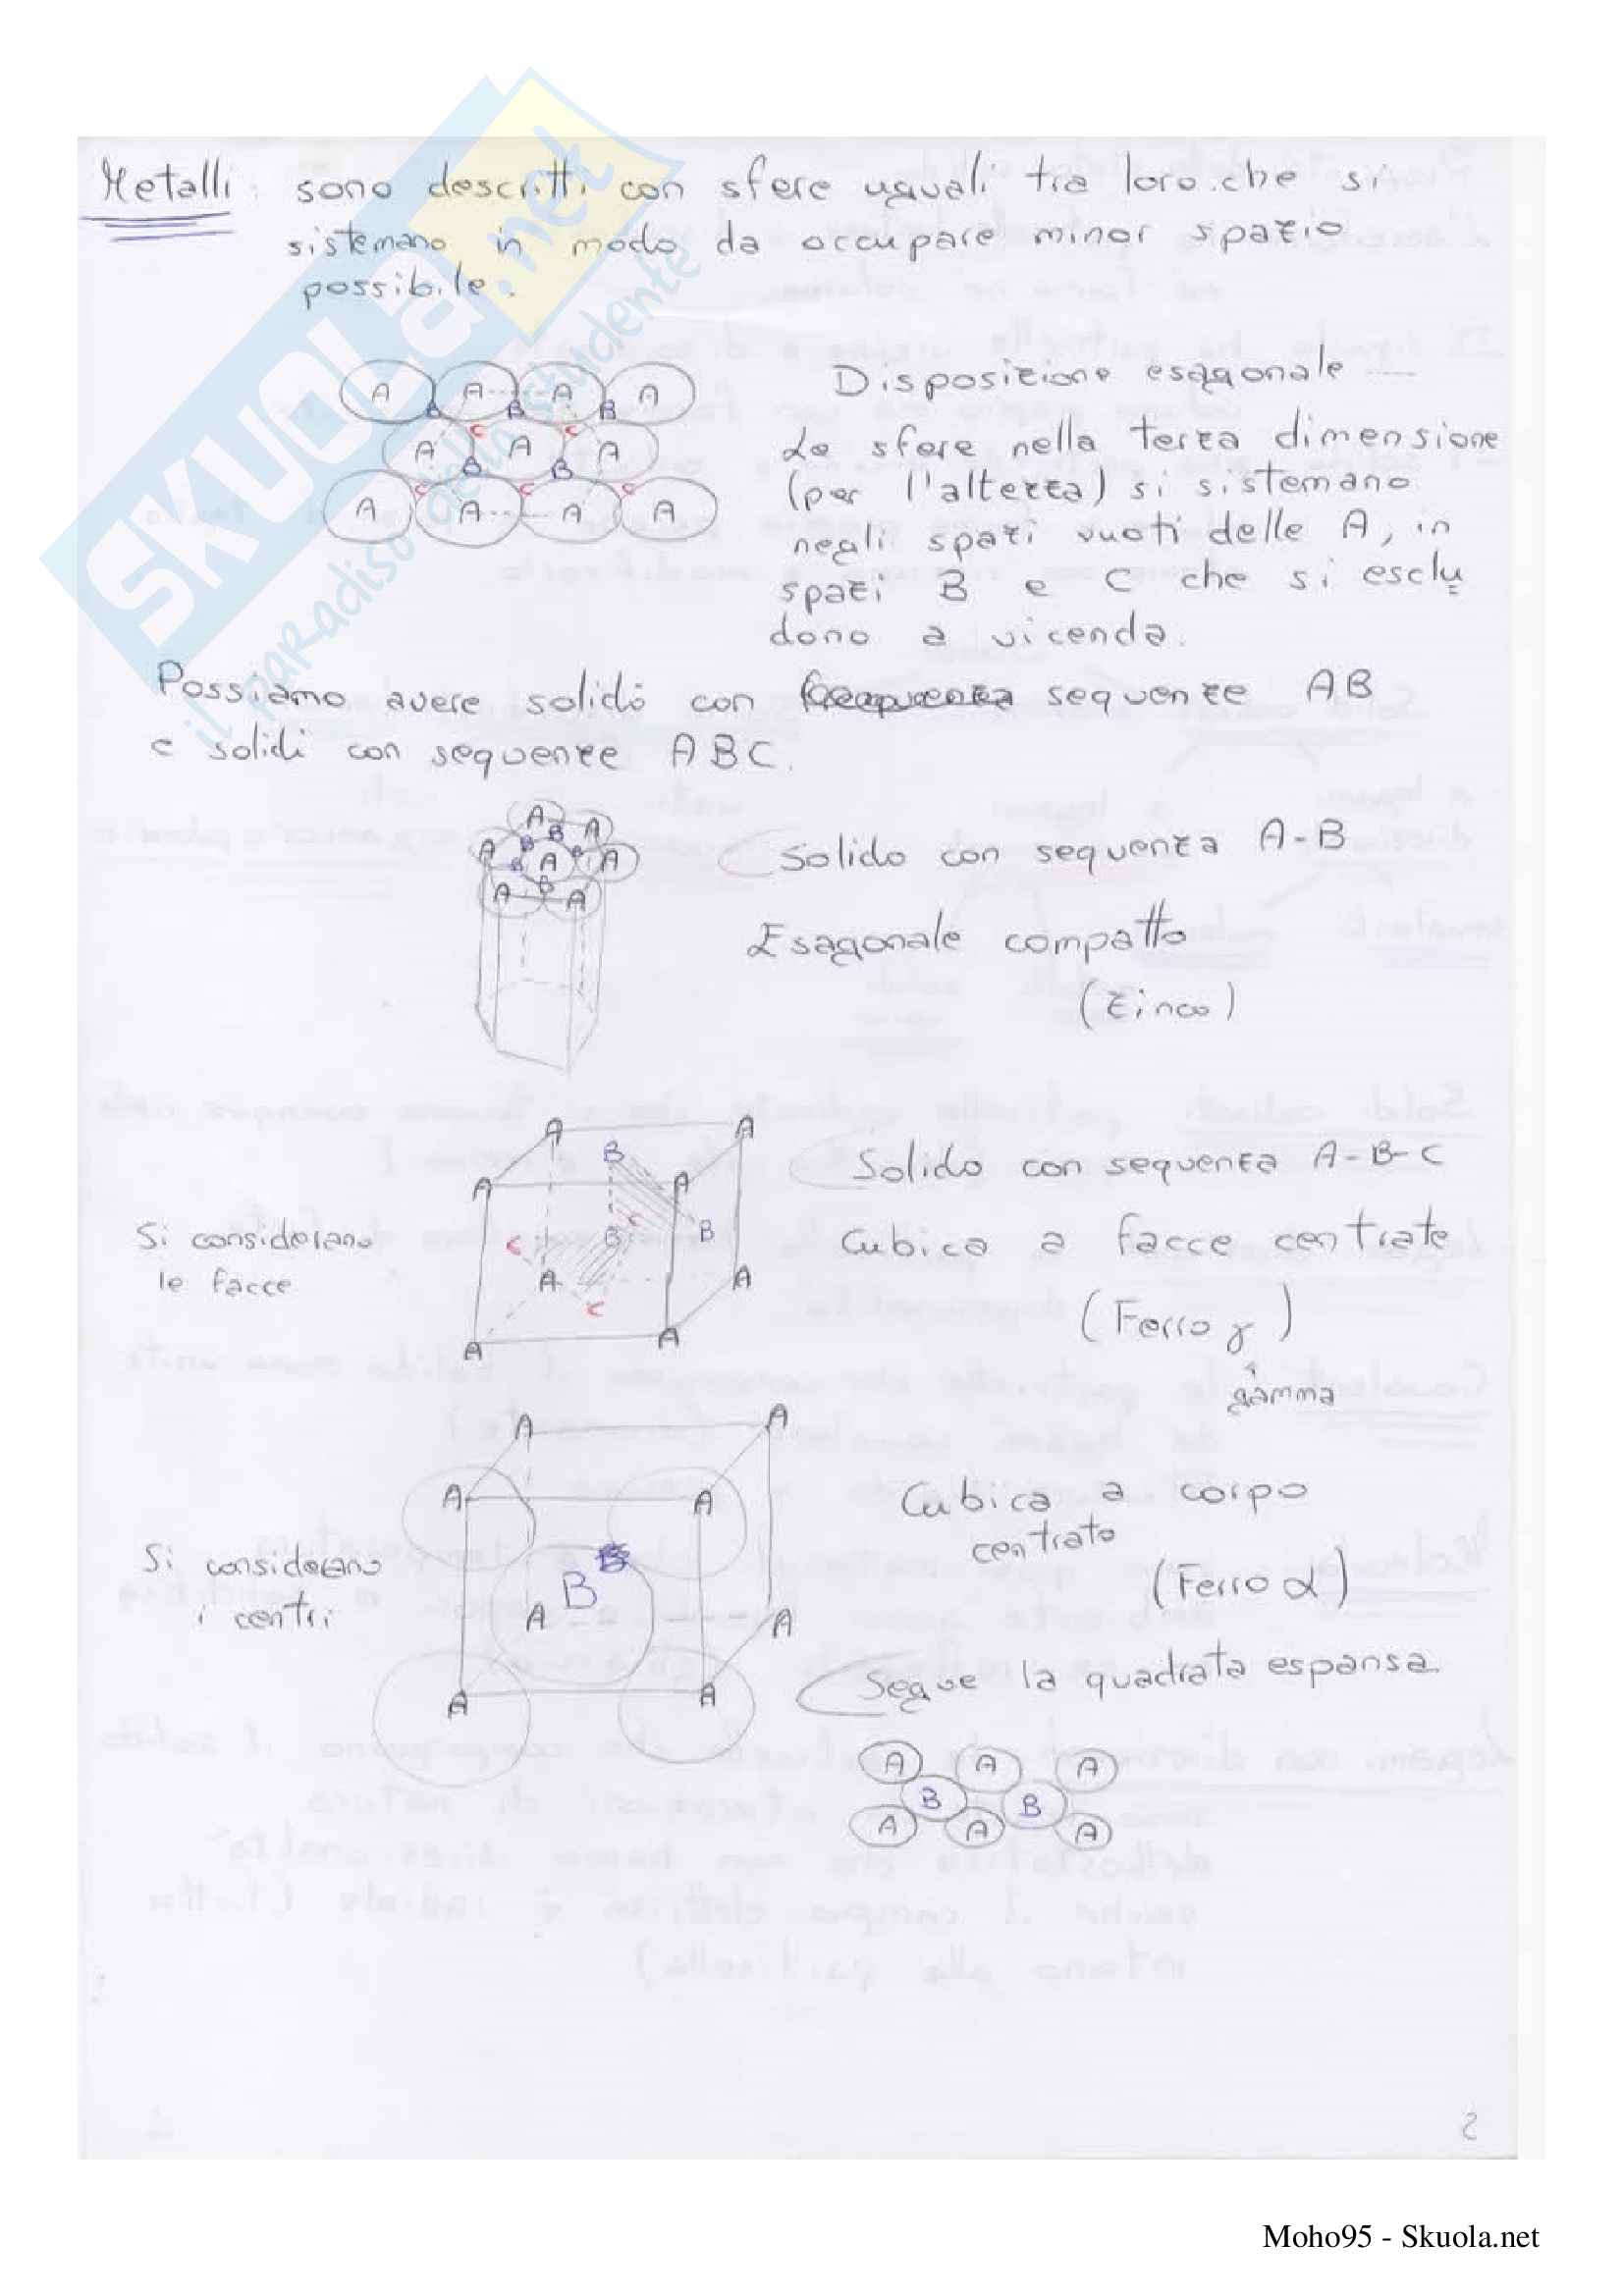 Metalli: sono descritti con sfere uguali tra loro che si
sistemano in modo da occupare minor spazio
possibile.
A A A A
B B B
C C
A A A
B B
C C C
A A A A
Disposizione esagonale
Le sfere nella terza dimensione
(per l'altezza) si sistemano
negli spazi vuoti delle A, in
spazi B e C che si esclu
dono a vicenda.
Possiamo avere solidi con sequenze AB
e solidi con sequenze ABC.
A A
B B
A B A B A
B
A A
Solido con sequenza A-B
Esagonale compatto
(Zinco)
A A
B
A A
Solido con sequenza A-B-C
Si considerano
le facce
C B C B
A A
C
A A
Cubica a facce centrate
(Ferro γ)
gamma
A A
A A
Cubica a corpo
centrato
(Ferro α)
Si considerano
i centri
B
A A
A A
Segue la quadrata espansa
A A A
B B
A A A
2
SKUOLA.net
il paradiso dello studente
Moho95 - Skuola.net